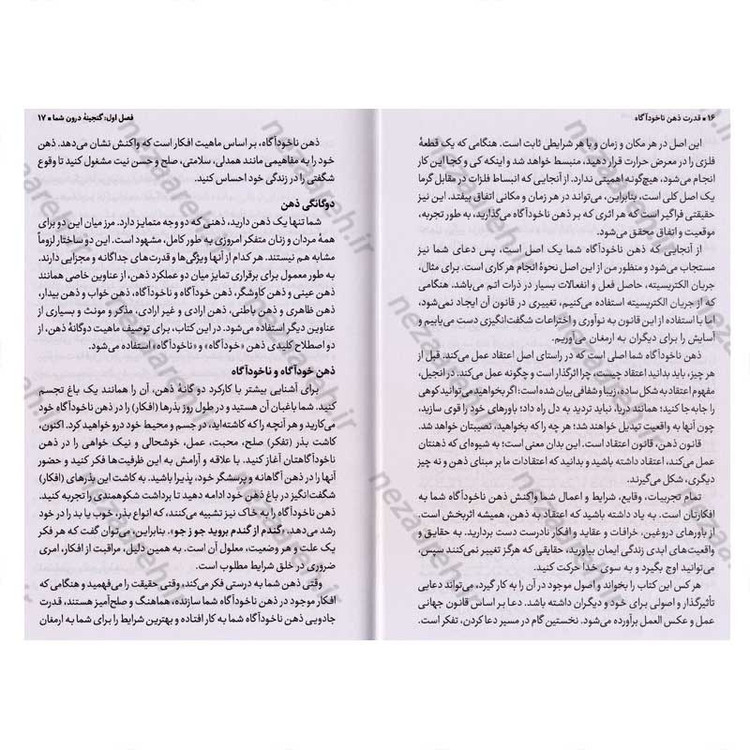 ۱۶ • قدرت ذهن ناخودآگاه
این اصل در هر مکان و زمان و یا هر شرایطی ثابت است. هنگامی که یک قطعهٔ
فلزی را در معرض حرارت قرار دهید، منبسط خواهد شد و اینکه کی و کجا این کار
انجام می‌شود، هیچ‌گونه اهمیتی ندارد. از آنجایی که انبساط فلزات در مقابل گرما
یک اصل کلی است، بنابراین، می‌تواند در هر زمان و مکانی اتفاق بیفتد. این نیز
حقیقتی فراگیر است که هر اثری که بر ذهن ناخودآگاه می‌گذارید، به طور تجربه،
موقعیت و اتفاق محقق می‌شود.
از آنجایی که ذهن ناخودآگاه شما یک اصل است، پس دعای شما نیز
مستجاب می‌شود و منظور من از این اصل نحوهٔ انجام هر کاری است. برای مثال،
جریان الکتریسیته، حاصل فعل و انفعالات بسیار در ذرات اتم می‌باشد. هنگامی
که از جریان الکتریسیته استفاده می‌کنیم، تغییری در قانون آن ایجاد نمی‌شود،
اما با استفاده از این قانون به نوآوری و اختراعات شگفت‌انگیزی دست می‌یابیم و
آسایش را برای دیگران به ارمغان می‌آوریم.
ذهن ناخودآگاه شما اصلی است که در راستای اصل اعتقاد عمل می‌کند. قبل از
هر چیز، باید بدانید اعتقاد چیست، چرا اثرگذار است و چگونه عمل می‌کند. در انجیل،
مفهوم اعتقاد به شکل ساده، زیبا و شفافی بیان شده است: اگر بخواهید می‌توانید کوهی
را جابه‌جا کنید؛ همانند دریا، نباید تردید به دل راه داد؛ باورهای خود را قوی سازید،
چون آنها به واقعیت تبدیل خواهند شد؛ هر چه را که بخواهید، نصیبتان خواهد شد.
قانون ذهن، قانون اعتقاد است. این بدان معنی است؛ به شیوه‌ای که ذهنتان
عمل می‌کند، اعتقاد داشته باشید و بدانید که اعتقادات ما بر مبنای ذهن و نه چیز
دیگری، شکل می‌گیرند.
تمام تجربیات، وقایع، شرایط و اعمال شما واکنش ذهن ناخودآگاه شما به
افکارتان است. به یاد داشته باشید که اعتقاد به ذهن، همیشه اثربخش است.
از باورهای دروغین، خرافات و عقاید و افکار نادرست دست بردارید. به حقایق و
واقعیت‌های ابدی زندگی ایمان بیاورید، حقایقی که هرگز تغییر نمی‌کنند سپس،
می‌توانید اوج بگیرد و به سوی خدا حرکت کنید.
هر کس این کتاب را بخواند و اصول موجود در آن را به کار گیرد، می‌تواند دعایی
تأثیرگذار و اصولی برای خود و دیگران داشته باشد. دعا بر اساس قانون جهانی
عمل و عکس العمل برآورده می‌شود. نخستین گام در مسیر دعا کردن، تفکر است.
فصل اول: گنجینهٔ درون شما • ۱۷
ذهن ناخودآگاه، بر اساس ماهیت افکار است که واکنش نشان می‌دهد. ذهن
خود را به مفاهیمی مانند همدلی، سلامتی، صلح و حسن نیت مشغول کنید تا وقوع
شگفتی را در زندگی خود احساس کنید.
دوگانگی ذهن
شما تنها یک ذهن دارید، ذهنی که دو وجه متمایز دارد. مرز میان این دو برای
همهٔ مردان و زنان متفکر امروزی به طور کامل، مشهود است. این دو ساختار لزوماً
مشابه هم نیستند. هر کدام از آنها ویژگی‌ها و قدرت‌های جداگانه و مجزایی دارند.
به طور معمول برای برقراری تمایز میان دو عملکرد ذهن، از عناوین خاصی همانند
ذهن عینی و ذهن کاوشگر، ذهن خودآگاه و ناخودآگاه، ذهن خواب و ذهن بیدار،
ذهن ظاهری و ذهن باطنی، ذهن ارادی و غیر ارادی، مذکر و مونث و بسیاری از
عناوین دیگر استفاده می‌شود. در این کتاب، برای توصیف ماهیت دوگانهٔ ذهن، از
دو اصطلاح کلیدی ذهن «خودآگاه» و «ناخودآگاه» استفاده می‌شود.
ذهن خودآگاه و ناخودآگاه
برای آشنایی بیشتر با کارکرد دو گانهٔ ذهن، آن را همانند یک باغ تجسم
کنید. شما باغبان آن هستید و در طول روز بذرها (افکار) را در ذهن ناخودآگاه خود
می‌کارید و هر آنچه را که کاشته‌اید، در جسم و محیط خود درو خواهید کرد. اکنون،
کاشت بذر (تفکر) صلح، محبت، عمل، خوشحالی و نیک خواهی را در ذهن
ناخودآگاهتان آغاز کنید. با علاقه و آرامش به این ظرفیت‌ها فکر کنید و حضور
آنها را در ذهن آگاهانه و پرسشگر خود، پذیرا باشید. به کاشت این بذرهای (افکار)
شگفت‌انگیز در باغ ذهن خود ادامه دهید تا برداشت شکوهمندی را تجربه کنید.
ذهن ناخودآگاه را به خاک نیز تشبیه می‌کنند، که انواع بذر، خوب یا بد را در خود
رشد می‌دهد، گندم از گندم بروید جو ز جو. بنابراین، می‌توان گفت که هر فکر
یک علت و هر وضعیت، معلول آن است. به همین دلیل، مراقبت از افکار، امری
ضروری در خلق شرایط مطلوب است.
وقتی ذهن شما به درستی فکر می‌کند، وقتی حقیقت را می‌فهمید و هنگامی که
افکار موجود در ذهن ناخودآگاه شما سازنده، هماهنگ و صلح‌آمیز هستند، قدرت
جادویی ذهن ناخودآگاه شما به کار افتاده و بهترین شرایط را برای شما به ارمغان
nezaareh.ir